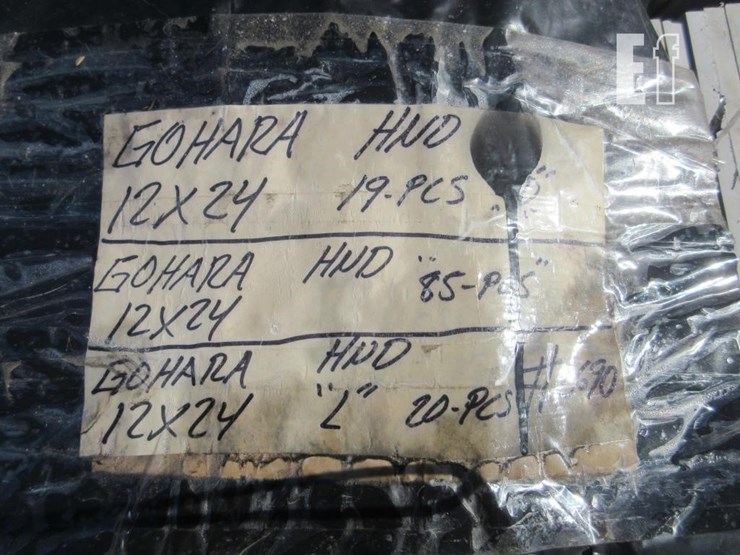 GOHARA HND
12X24 19-PCS
GOHARA HND "85-PCS"
12X24
GOHARA HND
12X24 "L" 20-PCS
Ef